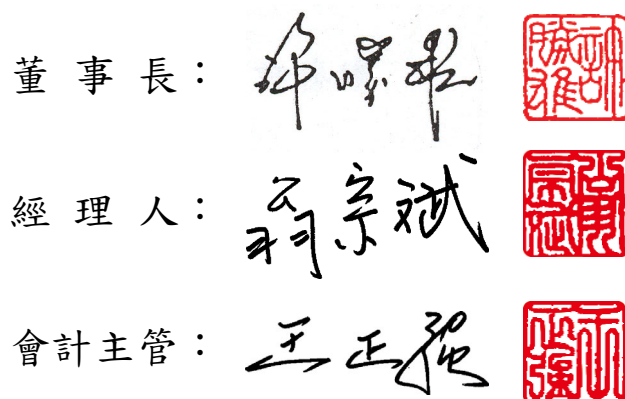 董事長：許勝雄
經理人：翁宗斌
會計主管：王正強